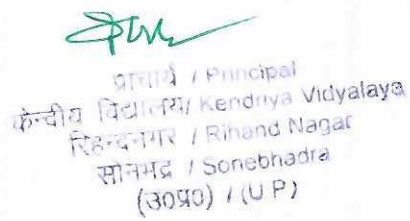 प्राचार्य / Principal
केन्द्रीय विद्यालय / Kendriya Vidyalaya
रिहन्दनगर / Rihand Nagar
सोनभद्र / Sonebhadra
(उ०प्र०) / (U P)